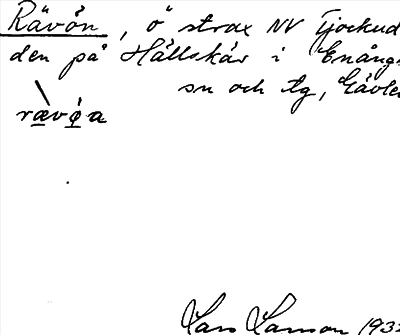 Rävön, ö strax NV Tjockud
den på Hållskär i Enångs
sn och tg, Gävle
rævø̂a
Lars Larsson 193